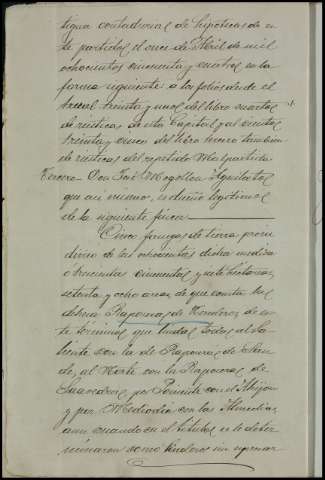 tigua contaduria de hipotecas de es
te partido, el once de Abril de mil
ochocientos cincuenta y cuatro, en la
forma siguiente a los folios desde el
treinta y uno del libro cuarto
de rústicas de esta Capital, y al ciento
treinta y nueve del libro tercero tambien
de rústicas del repetido Malpartida
Tercero. Don José Mogollon Aguilar
que asi mismo, es dueño legitimo
de la siguiente finca
Cinco fanegas de tierra proin
diviso de las ochocientas dichas medida
ó trescientas cincuenta y siete hectareas
setenta y ocho areas de que consta la
dehesa Raposeras de Ronderos de es
te término, que lindas todas al Sa
liente con la de Raposeras de
de, al Norte con la Raposeras de
Saavedra, por Poniente con el
y por Mediodia con las
aun cuando en el titulo se le deter
minaron como linderos un